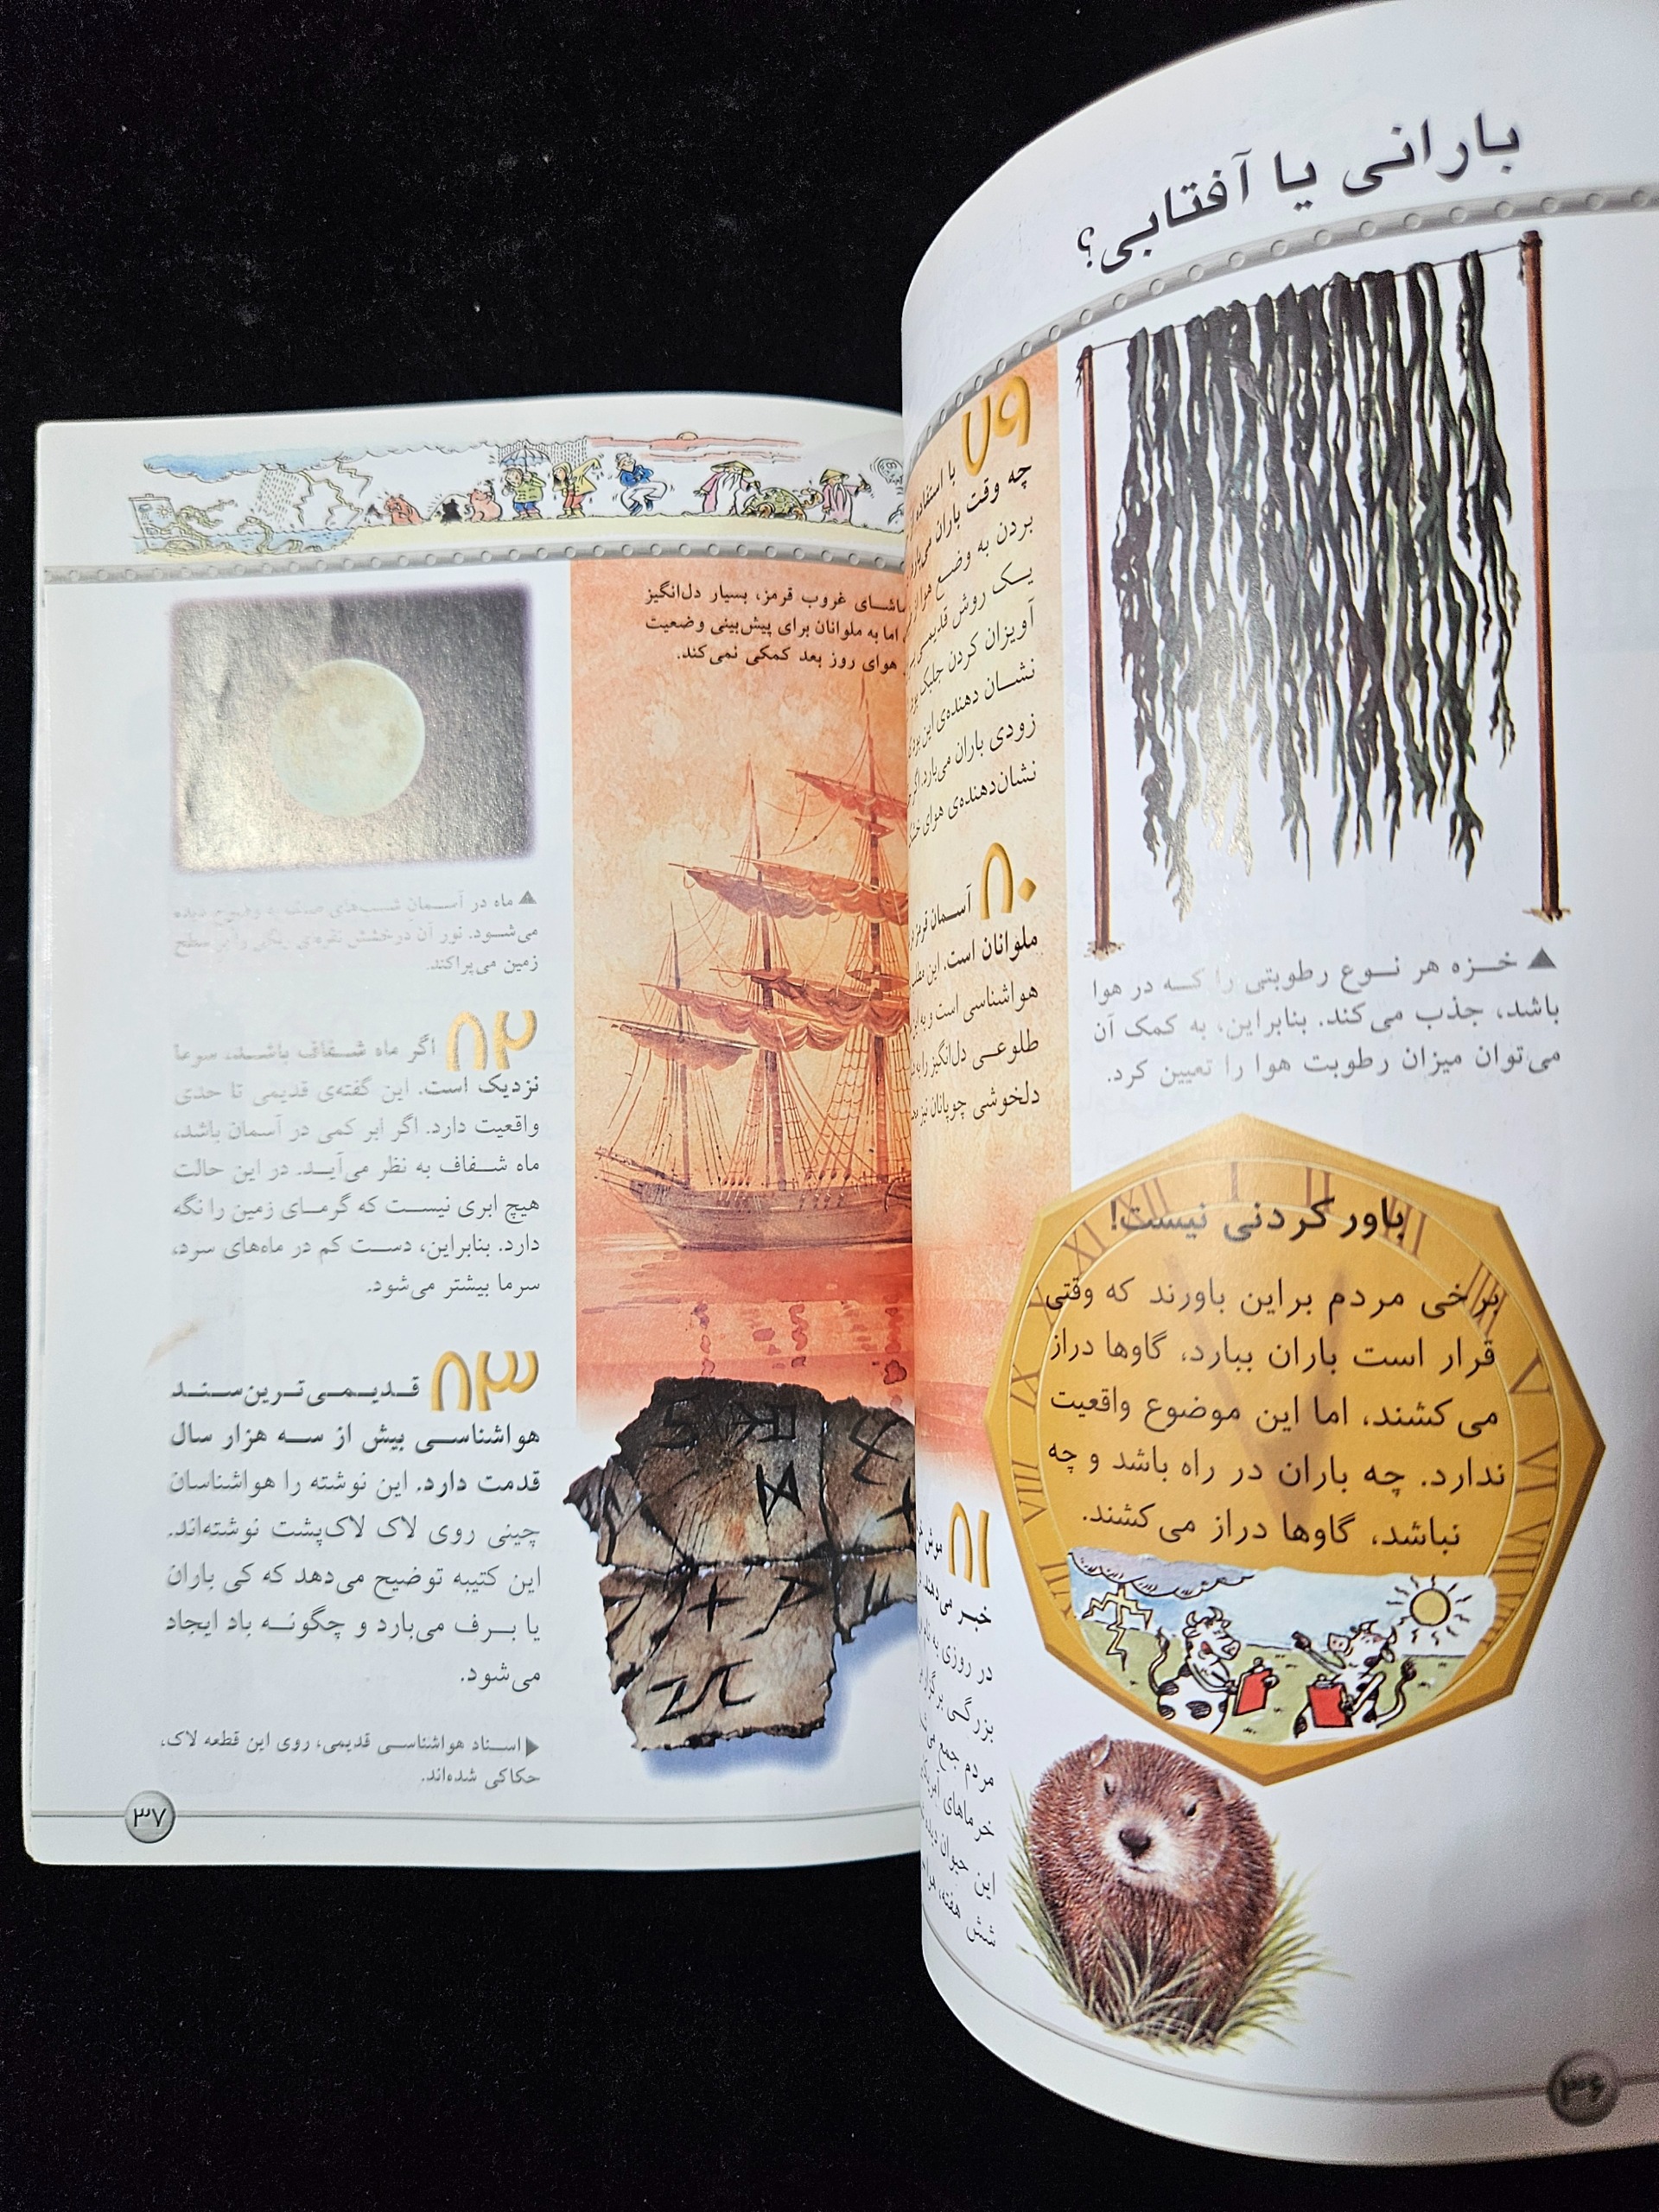 بارانی یا آفتابی؟
۷۹ با استفاده
چه وقت باران می‌بارد
بردن به وضع هوا
یک روش قدیمی
آویزان کردن جلبک
نشان دهنده‌ی این
زودی باران می‌بارد. اگر
نشان‌دهنده‌ی هوای
۸۰ آسمان قرمز
ملوانان است. این
هواشناسی است و به
طلوعی دل‌انگیز را به
دلخوشی چوپانان نیز
۸۱ موش
خبر می‌دهند
در روزی به نام
بزرگی بر
مردم جمع می
خرماهای
این حیوان
شش هفته،
▲ خزه هر نوع رطوبتی را که در هوا
باشد، جذب می‌کند. بنابراین، به کمک آن
می‌توان میزان رطوبت هوا را تعیین کرد.
باور کردنی نیست!
برخی مردم براین باورند که وقتی
قرار است باران ببارد، گاوها دراز
می‌کشند، اما این موضوع واقعیت
ندارد. چه باران در راه باشد و چه
نباشد، گاوها دراز می‌کشند.
۳۶
غروب قرمز، بسیار دل‌انگیز
اما به ملوانان برای پیش‌بینی وضعیت
هوای روز بعد کمکی نمی‌کند.
▲ ماه در آسمان شب‌های صاف به وضوح دیده
می‌شود. نور آن درخشش نقره‌ای رنگی را بر سطح
زمین می‌پراکند.
۸۲ اگر ماه شفاف باشد، سرما
نزدیک است. این گفته‌ی قدیمی تا حدی
واقعیت دارد. اگر ابر کمی در آسمان باشد،
ماه شفاف به نظر می‌آید. در این حالت
هیچ ابری نیست که گرمای زمین را نگه
دارد. بنابراین، دست کم در ماه‌های سرد،
سرما بیشتر می‌شود.
۸۳ قدیمی‌ترین سند
هواشناسی بیش از سه هزار سال
قدمت دارد. این نوشته را هواشناسان
چینی روی لاک لاک‌پشت نوشته‌اند.
این کتیبه توضیح می‌دهد که کی باران
یا برف می‌بارد و چگونه باد ایجاد
می‌شود.
▶ اسناد هواشناسی قدیمی، روی این قطعه لاک،
حکاکی شده‌اند.
۳۷